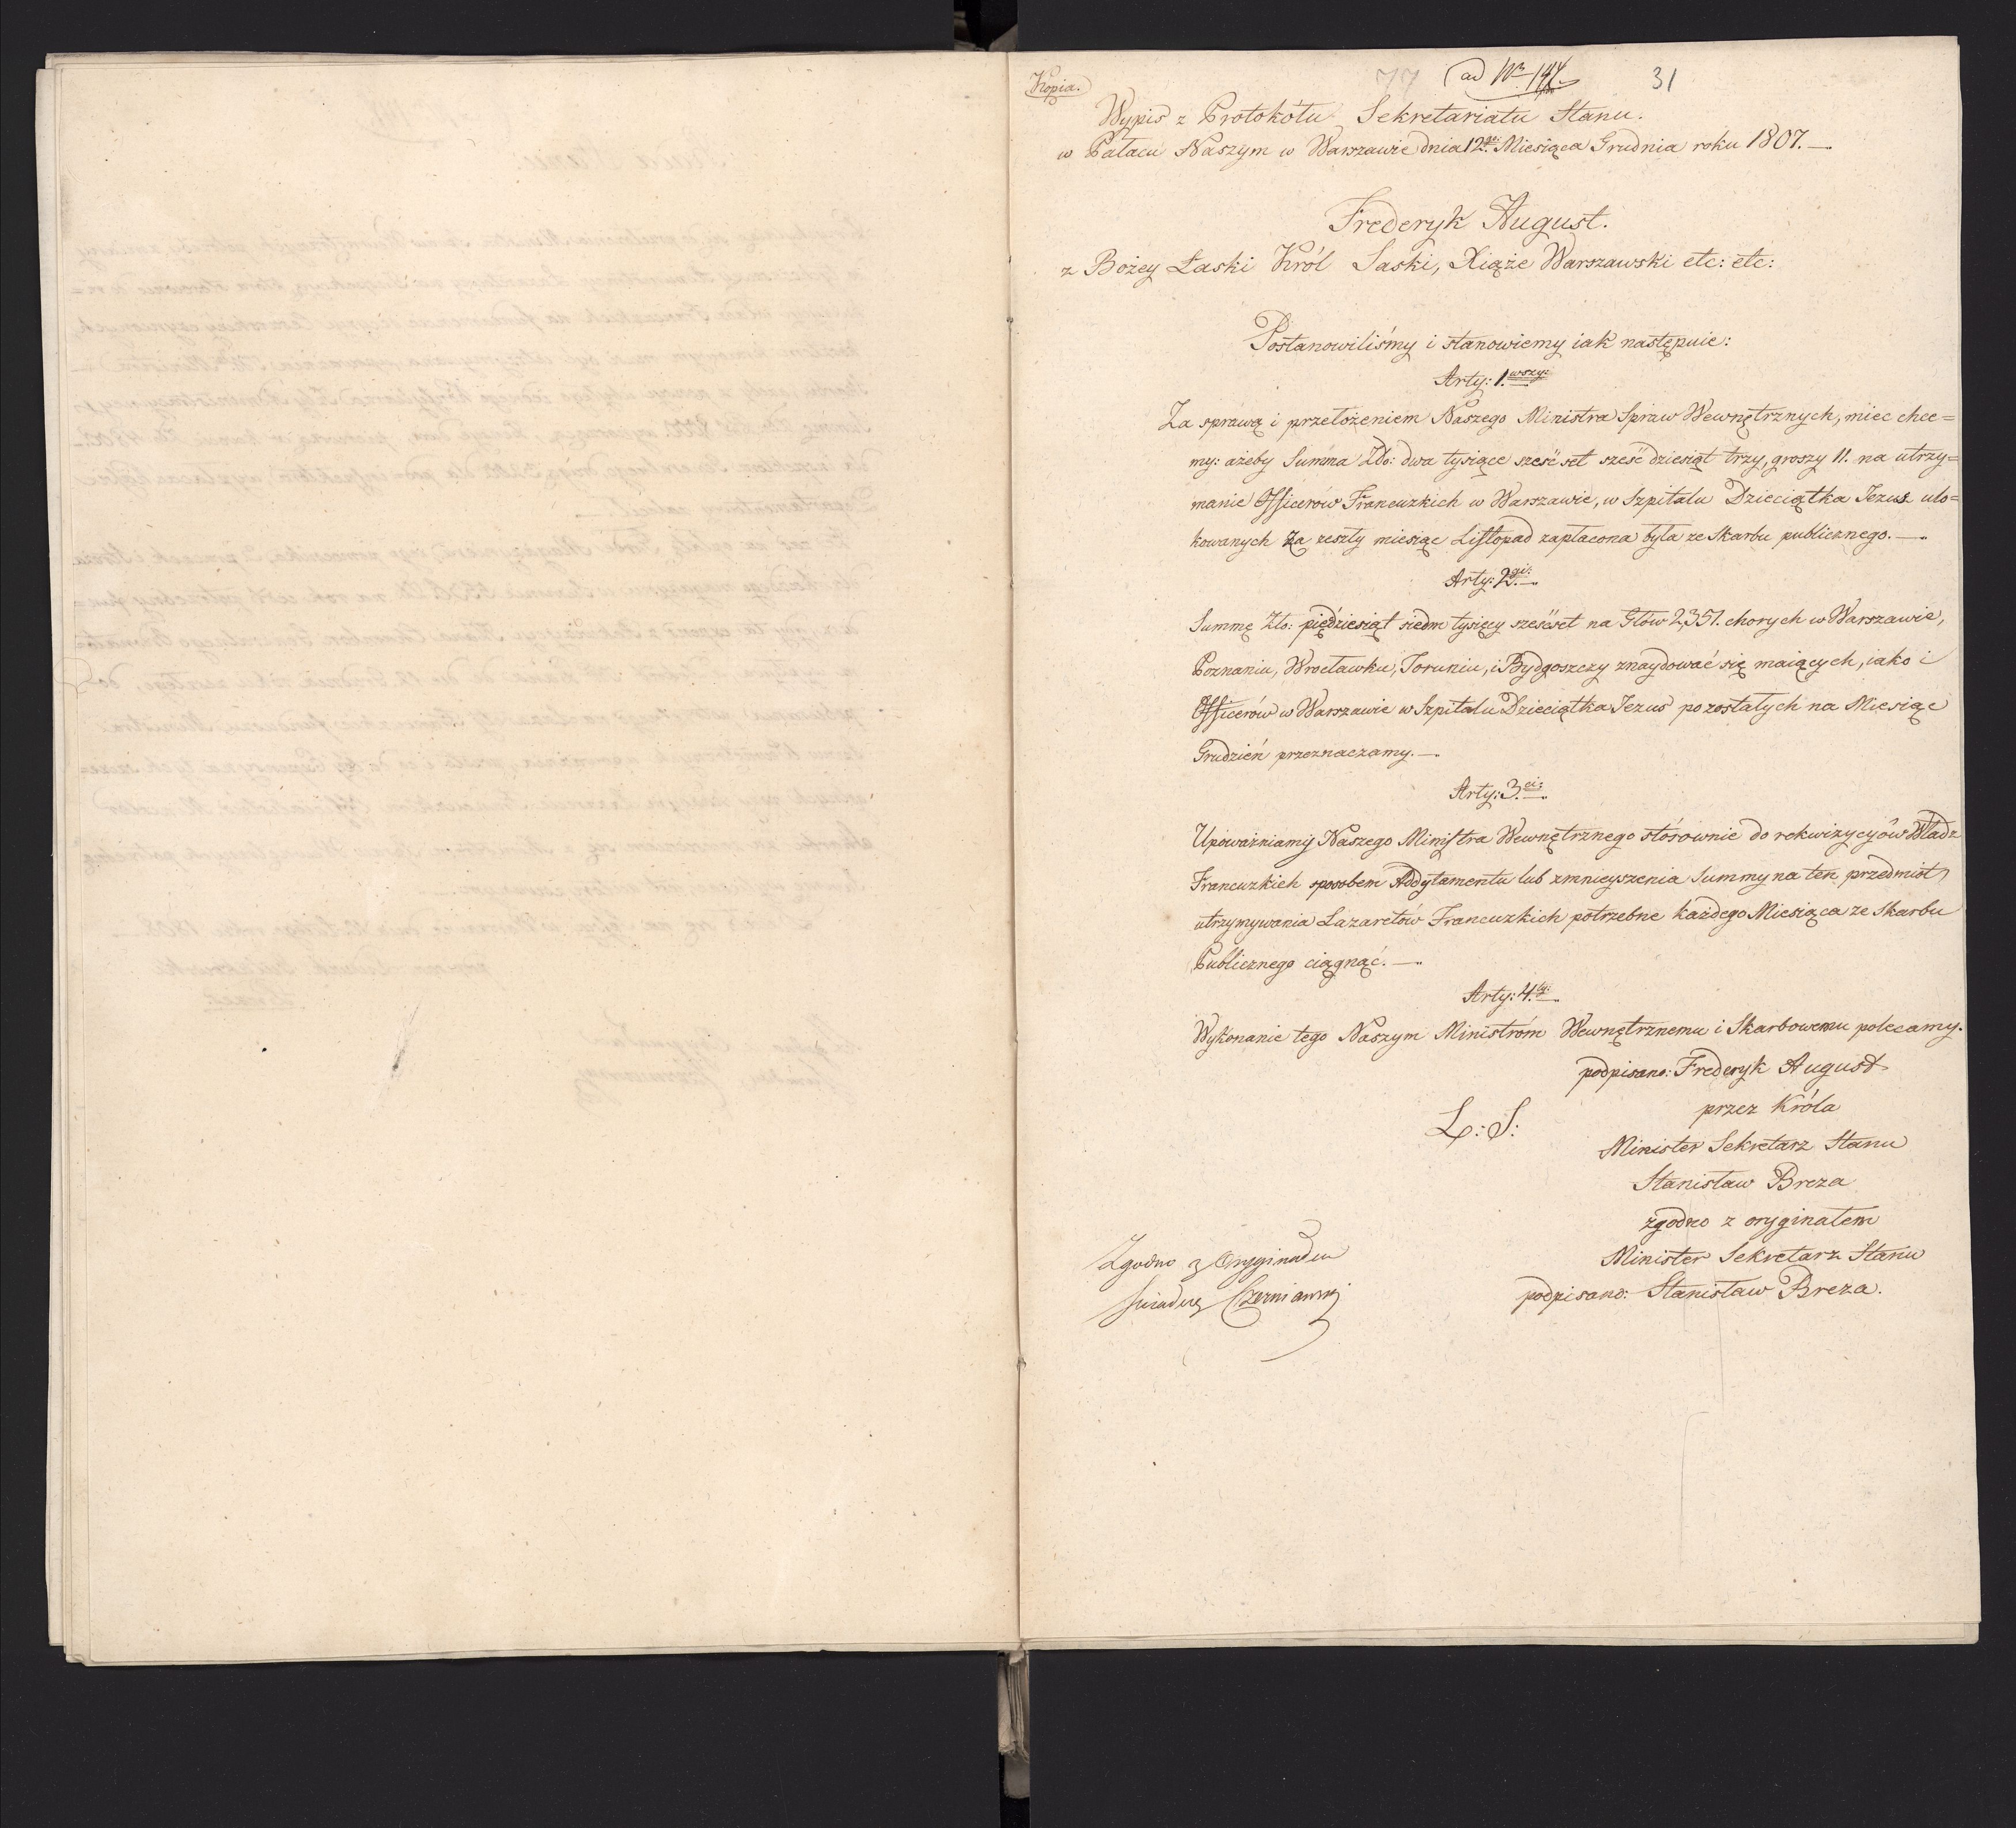 Kopia.
77 ad Nr 144. 31
Wypis z Protokółu Sekretariatu Stanu.
w Pałacu Naszym w Warszawie dnia 12go Miesiąca Grudnia roku 1807.
Frederyk August.
z Bożey Łaski Król Saski, Xiąże Warszawski etc: etc:
Postanowiliśmy i stanowiemy iak następuie:
Arty: 1.wszy:
Za sprawą i przełożeniem Naszego Ministra Spraw Wewnętrznych, miec chce=
my: ażeby Summa Zło: dwa tysiące sześćset sześćdziesiąt trzy, groszy 11. na utrzy=
manie Officerow Francuzkich w Warszawie, w Szpitalu Dzieciątka Iezus ulo=
kowanych za zeszły miesiąc Listopad zapłacona była ze Skarbu publicznego.
Arty: 2.gi:
Summę Zło: piędziesiąt siedm tysięcy sześćset na Głów 2,351. chorych w Warszawie,
Poznaniu, Wrocławku, Toruniu, i Bydgoszczy znaydować się maiących, iako i
Officerów w Warszawie w Szpitalu Dzieciątka Iezus pozostałych na Miesiąc
Grudzień przeznaczamy.
Arty: 3.ci:
Upoważniamy Naszego Ministra Wewnętrznego stósownie do rekwizycyów Władz
Francuzkich sposobem Addytamentu lub zmnieyszenia Summy na ten przedmiot
utrzymywania Lazaretów Francuzkich potrzebne każdego Miesiąca ze Skarbu
Publicznego ciągnąć.
Arty: 4.ty:
Wykonanie tego Naszym Ministróm Wewnętrznemu i Skarbowemu polecamy.
podpisano: Frederyk August
przez Króla
L: S:
Minister Sekretarz Stanu
Stanisław Breza
zgodno z oryginałem
Minister Sekretarz Stanu
podpisano: Stanisław Breza.
Zgodno z Oryginałem